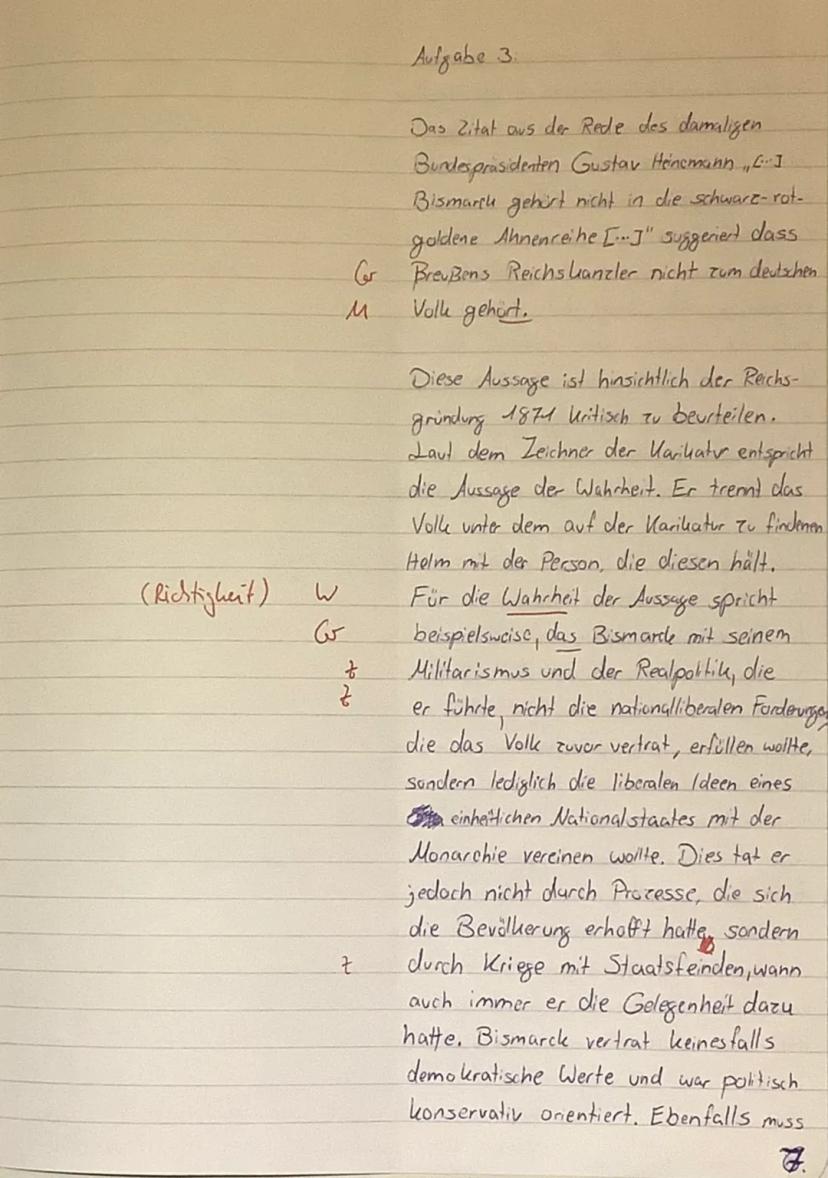 Aufgabe 3.
Das Zitat aus der Rede des damaligen
Bundespräsidenten Gustav Heinemann „[...]
Bismarck gehört nicht in die schwarz-rot-
goldene Ahnenreihe [...]" suggeriert dass
Gr Breußens Reichskanzler nicht zum deutschen
M Volk gehört.
Diese Aussage ist hinsichtlich der Reichs-
gründung 1871 kritisch zu beurteilen.
Laut dem Zeichner der Karikatur entspricht
die Aussage der Wahrheit. Er trennt das
Volk unter dem auf der Karikatur zu findenen
Helm mit der Person, die diesen hält.
(Richtigkeit) W Für die Wahrheit der Aussage spricht
Gr beispielsweise, das Bismarck mit seinem
z Militarismus und der Realpolitik, die
z er führte, nicht die nationalliberalen Forderungen,
die das Volk zuvor vertrat, erfüllen wollte,
sondern lediglich die liberalen Ideen eines
einheitlichen Nationalstaates mit der
Monarchie vereinen wollte. Dies tat er
jedoch nicht durch Prozesse, die sich
die Bevölkerung erhofft hatte, sondern
z durch Kriege mit Staatsfeinden, wann
auch immer er die Gelegenheit dazu
hatte. Bismarck vertrat keinesfalls
demokratische Werte und war politisch
konservativ orientiert. Ebenfalls muss
7.